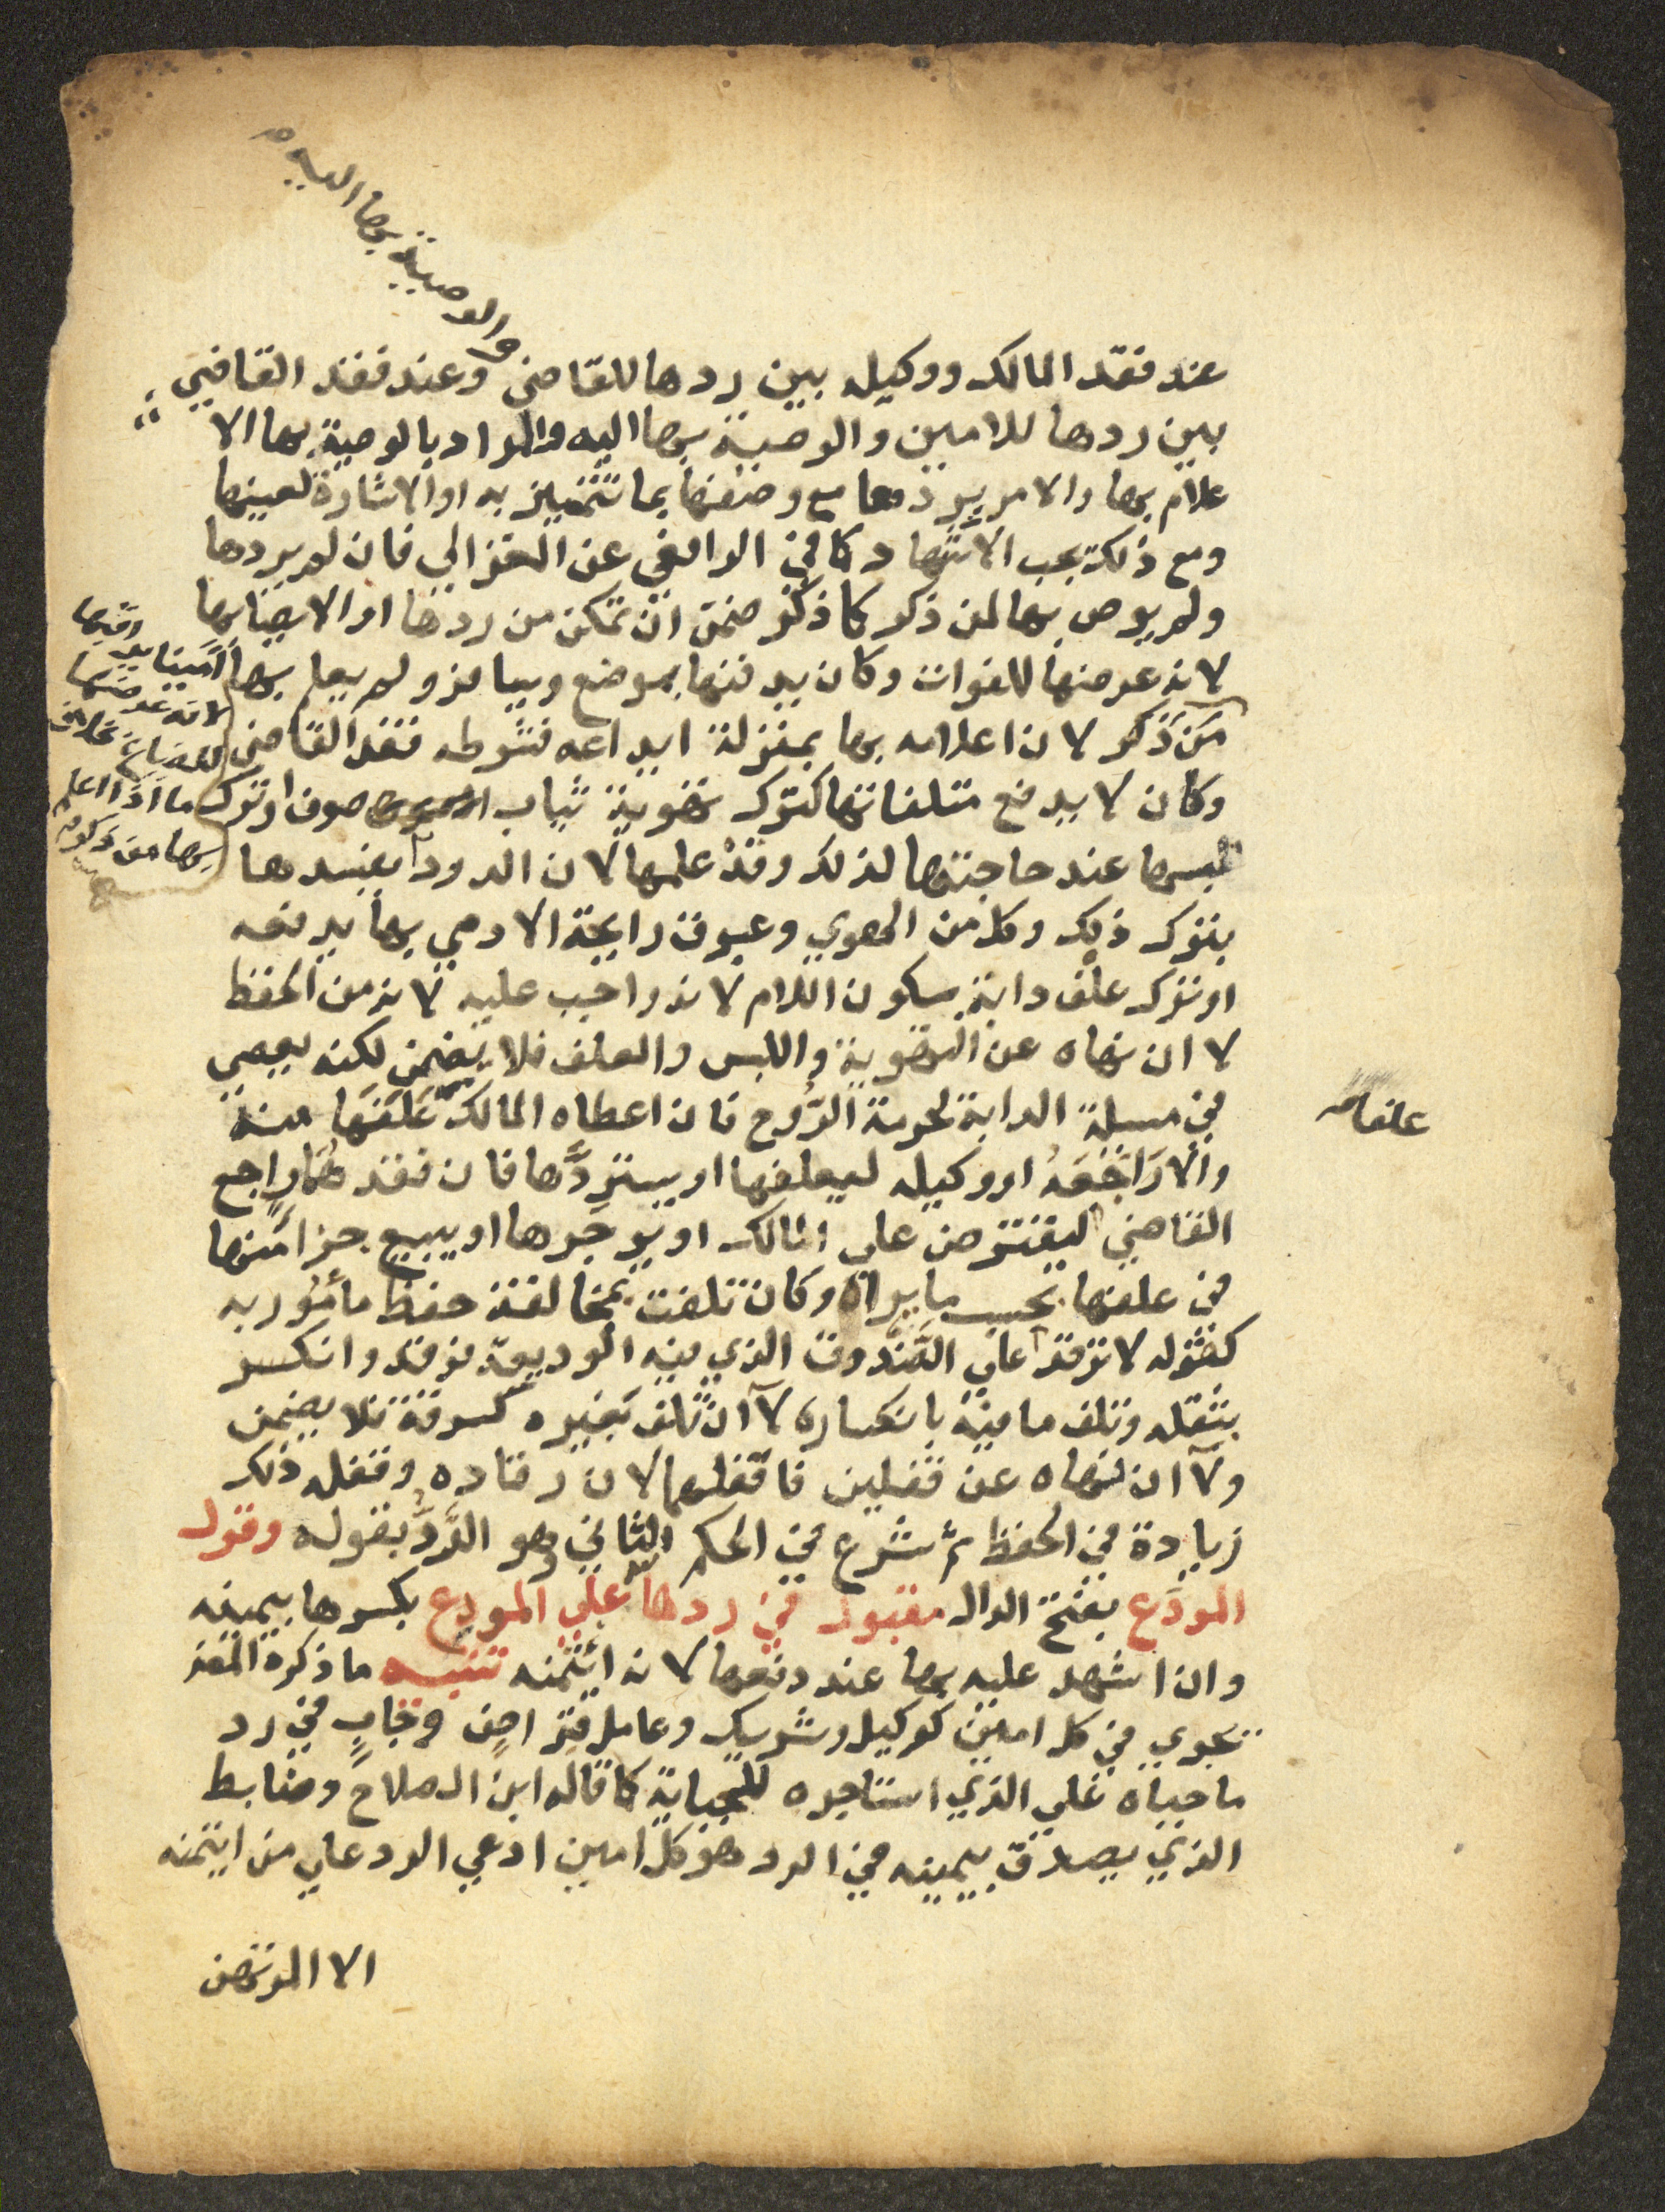 والوصية بها اليه صح
عند فقد المالك ووكيله بين ردها للقاضي وعند فقد القاضي
بين ردها للامين والوصية بها اليه والمراد بالوصية بها الا
علام بها والامر بردها مع وصفها بما تتميز به او الاشارة لعينها
ومع ذلك يجب الاشهاد كما في الرافعي عن الغزالي فان لم يردها
ولم يوص بها لمن ذكر كما ذكر ضمن ان تمكن من ردها او الايصا بها
لانه عرضها للفوات وكان يدفنها بموضع ويسافر ولم يعلم بها امينا يراقبها
من ذكر لان اعلامه بها بمنزلة ايداعه فشرطه فقد القاضي
لانه عرضها للضياع بخلاف
ما اذا اعلم
بها من ذكر صح
وكان لا يدفع متلفاتها كترك تهوية ثياب صوف او ترك
لبسها عند حاجتها لذلك وقد علمها لان الدود يفسدها
بترك ذلك وكل من الهوي وعبوق رايحة الادمي بها يدفعه
او ترك علف دابة بسكون اللام لانه واجب عليه لانه من الحفظ
لا ان نهاه عن التهوية واللبس والعلف فلا يضمن لكنه يعصي
في مسيلة الدابة لحرمة الروح فان اعطاه المالك علفها منه
علفا صح
والا راجعه او وكيله ليعلفها او يستردها فان فقدهما راجع
القاضي ليقترض علي المالك او يوجرها او يبيع جزا منها
في علفها بحسب ما يراه وكان تلفت بمخالفة حفظ مأمور به
كقوله لا ترقد علي الصندوق الذي فيه الوديعة فرقد وانكسر
بثقله وتلف ما فيه بانكساره لا ان تلف بغيره كسرقة فلا يضمن
ولا ان نهاه عن قفلين فاقفلهما لان رقاده وقفله ذلك
زيادة في الحفظ ثم شرع في الحكم الثاني وهو الرد بقوله وقول
المودع بفتح الدال مقبول في ردها علي المودع بكسرها بيمينه
وان اشهد عليه بها عند دفعها لانه ائتمنه تنبيه ما ذكره المصنف
يجري في كل امين كوكيل وشريك وعامل قراض وجاب في رد
ما جباه علي الذي استاجره للجباية كما قاله ابن الصلاح وضابط
الذي يصدق بيمينه في الرد هو كل امين ادعي الرد علي من ايتمنه
الا المرتهن